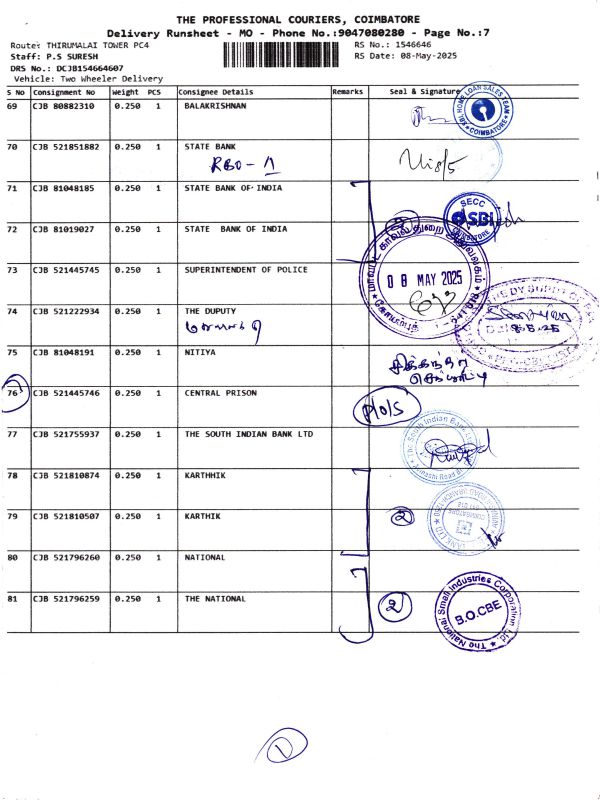 THE PROFESSIONAL COURIERS, COIMBATORE
Delivery Runsheet - MO - Phone No.:9047080280 - Page No.:7
Route: THIRUMALAI TOWER PC4
RS No.: 1546646
Staff: P.S SURESH
RS Date: 08-May-2025
DRS No.: DCJB154664607
Vehicle: Two Wheeler Delivery
S No Consignment No Weight PCS Consignee Details Remarks Seal & Signature
69 CJB 80882310 0.250 1 BALAKRISHNAN
HOME LOAN SALES TEAM
COIMBATORE
70 CJB 521851882 0.250 1 STATE BANK
RBO-
71 CJB 81048185 0.250 1 STATE BANK OF INDIA
SECC
SBI
COIMBATORE
72 CJB 81019027 0.250 1 STATE BANK OF INDIA
73 CJB 521445745 0.250 1 SUPERINTENDENT OF POLICE
மாவட்ட காவல் துறை அலுவலகம்
08 MAY 2025
74 CJB 521222934 0.250 1 THE DUPUTY
75 CJB 81048191 0.250 1 NITIYA
76 CJB 521445746 0.250 1 CENTRAL PRISON
P/O/S
77 CJB 521755937 0.250 1 THE SOUTH INDIAN BANK LTD
The South Indian Bank
78 CJB 521810874 0.250 1 KARTHHIK
79 CJB 521810507 0.250 1 KARTHIK
2
80 CJB 521796260 0.250 1 NATIONAL
81 CJB 521796259 0.250 1 THE NATIONAL
2
The National Small Industries Corporation Ltd.
B.O.CBE
1